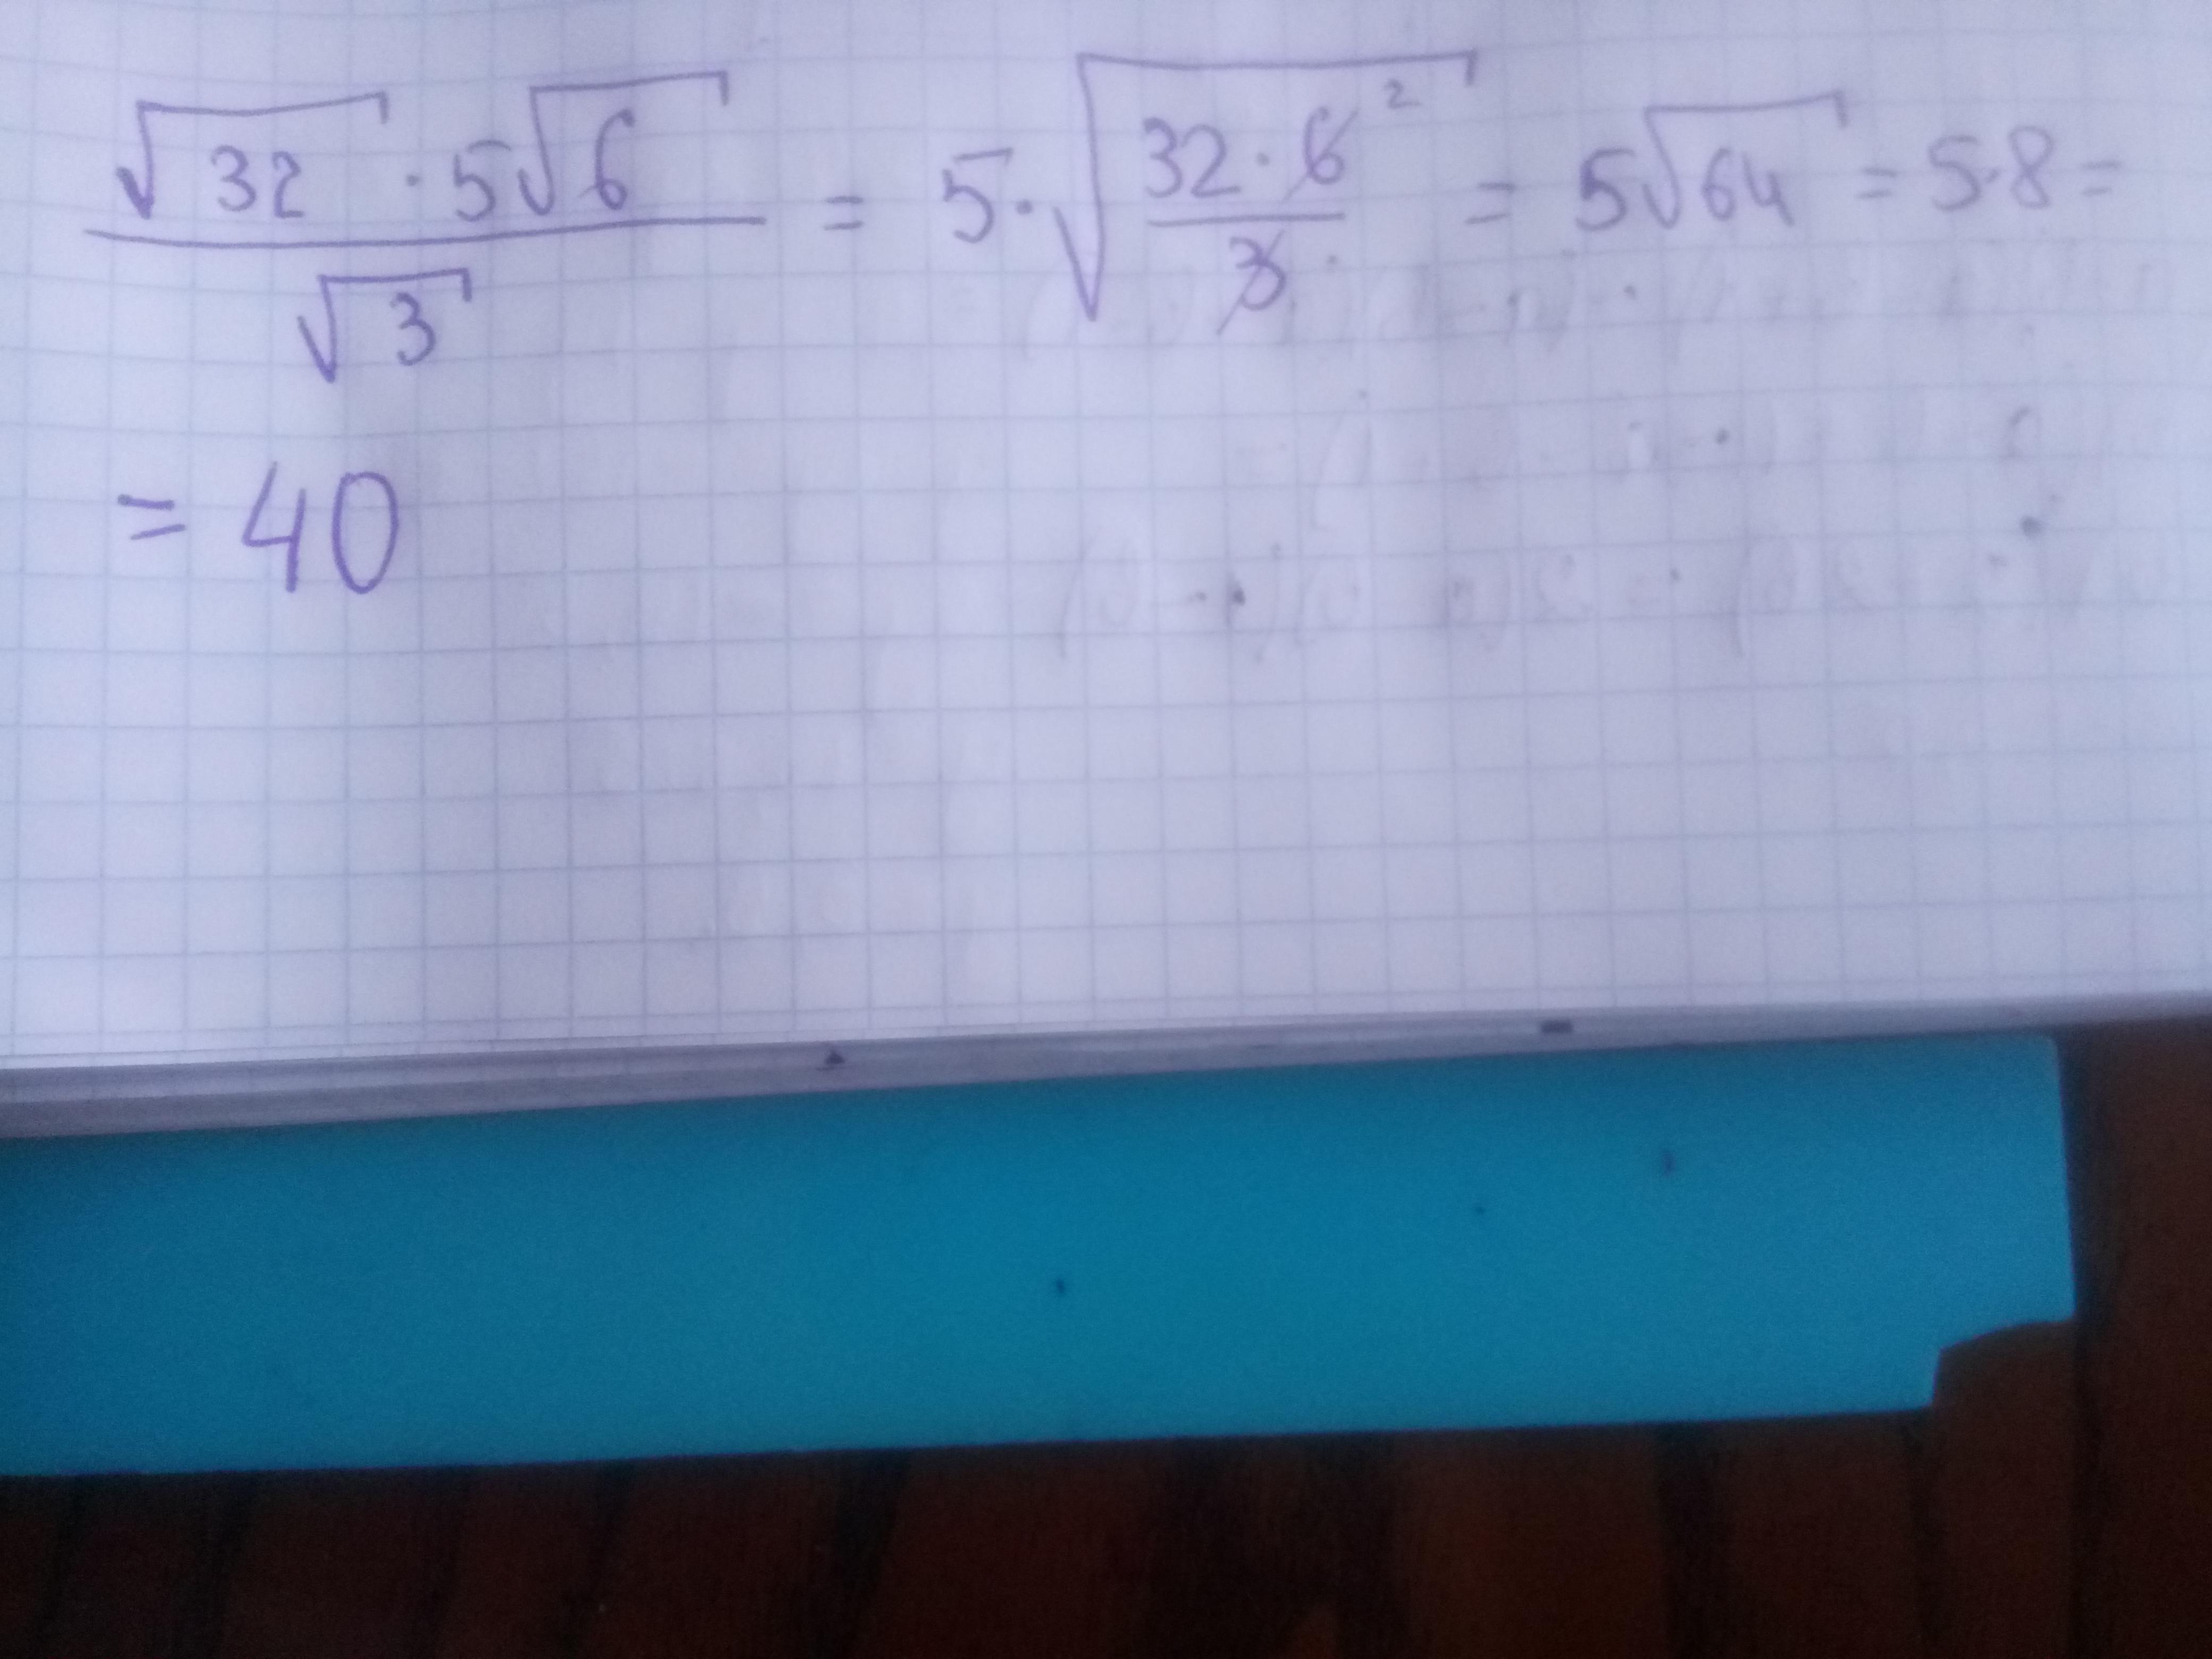 √32 · 5√6 / √3 = 5 · √(32 · 6² / 3) = 5√64 = 5·8 =
= 40